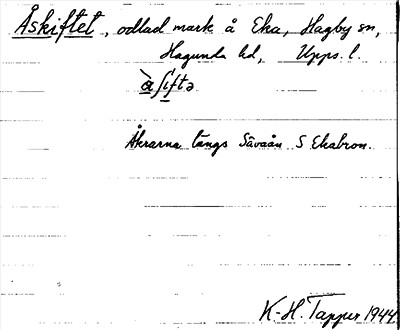 Åskiftet, odlad mark å Eka, Hagby sn,
Hagunda hd, Upps. l.
`åʃiftə
Åkrarna längs Sävaån S Ekabron.
K-H. Tapper 1944.